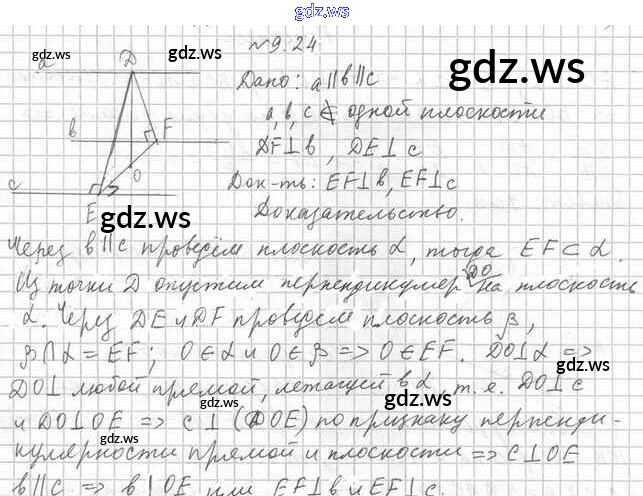 gdz.ws
№9.24
a D
gdz.ws gdz.ws gdz.ws
Дано: a∥b∥c
a, b, c ∉ одной плоскости
b F
DF⊥b, DE⊥c
O
c
Док-ть: EF⊥b, EF⊥c
E
gdz.ws
Доказательство.
Через b∥c проведём плоскость α, тогда EF⊂α.
Из точки D опустим перпендикуляр DO на плоскость
α. Через DE и DF проведем плоскость β,
β∩α=EF; O∈α и O∈β => O∈EF. DO⊥α =>
DO⊥ любой прямой, лежащей в α, т.е. DO⊥c
gdz.ws gdz.ws
и DO⊥OE => c⊥(DOE) по признаку перпенди-
gdz.ws
кулярности прямой и плоскости => c⊥OE
b∥c => b⊥OE или EF⊥b и EF⊥c.